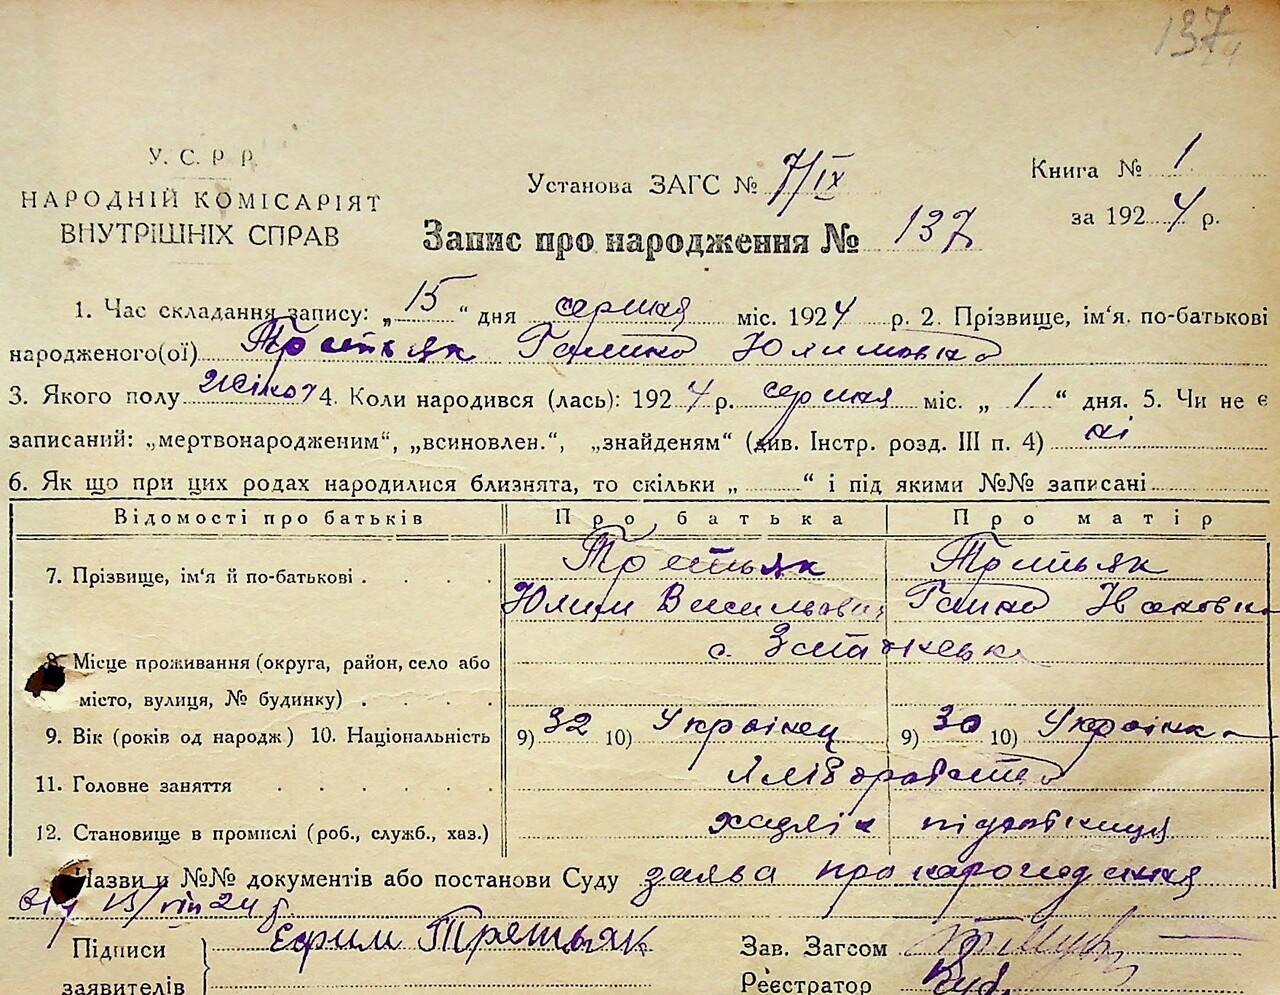 137
У.С.Р.Р.
НАРОДНІЙ КОМІСАРІЯТ
ВНУТРІШНІХ СПРАВ
Установа ЗАГС № 7/IX
Книга № 1
за 1924 р.
Запис про народження № 137
1. Час складання запису: „15“ дня серпня міс. 1924 р. 2. Прізвище, ім'я, по-батькові
народженого(ої) Третьяк Галина Юхимовна
3. Якого полу жіноч 4. Коли народився (лась): 1924 р. серпня міс. „1“ дня. 5. Чи не є
записаний: „мертвонародженим“, „всиновлен.“, „знайденям“ (див. Інстр. розд. III п. 4) ні
6. Як що при цих родах народилися близнята, то скільки „ “ і під якими №№ записані
Відомості про батьків Про батька Про матір
7. Прізвище, ім'я й по-батькові Третьяк Третьяк
Василь Ганна
8 Місце проживання (округа, район, село або с.
місто, вулиця, № будинку)
9. Вік (років од народж) 10. Національність 9) 32 10) Українец 9) 30 10) Українка
11. Головне заняття хліборобство
12. Становище в промислі (роб., служб., хаз.) хазяїн
Назви и №№ документів або постанови Суду заява про народження
від 15/VIII 24 р.
Підписи Ефим Третьяк Зав. Загсом
заявителів Реєстратор